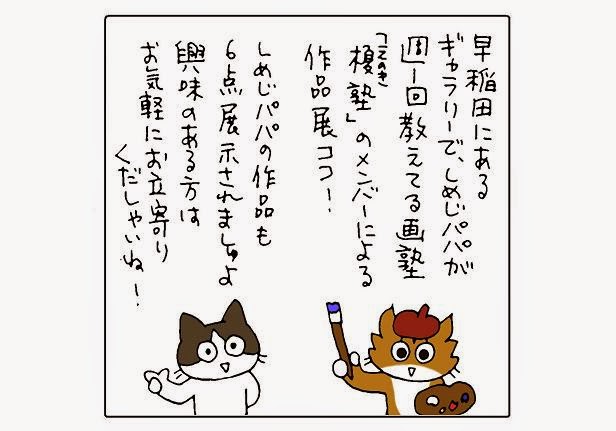 早稲田にある
ギャラリーで、しめじパパが
週一回教えてる画塾
「榎塾」のメンバーによる
えのき
作品展ココ！
しめじパパの作品も
6点展示されましゅよ
興味のある方は
お気軽にお立寄り
くだしゃいね！